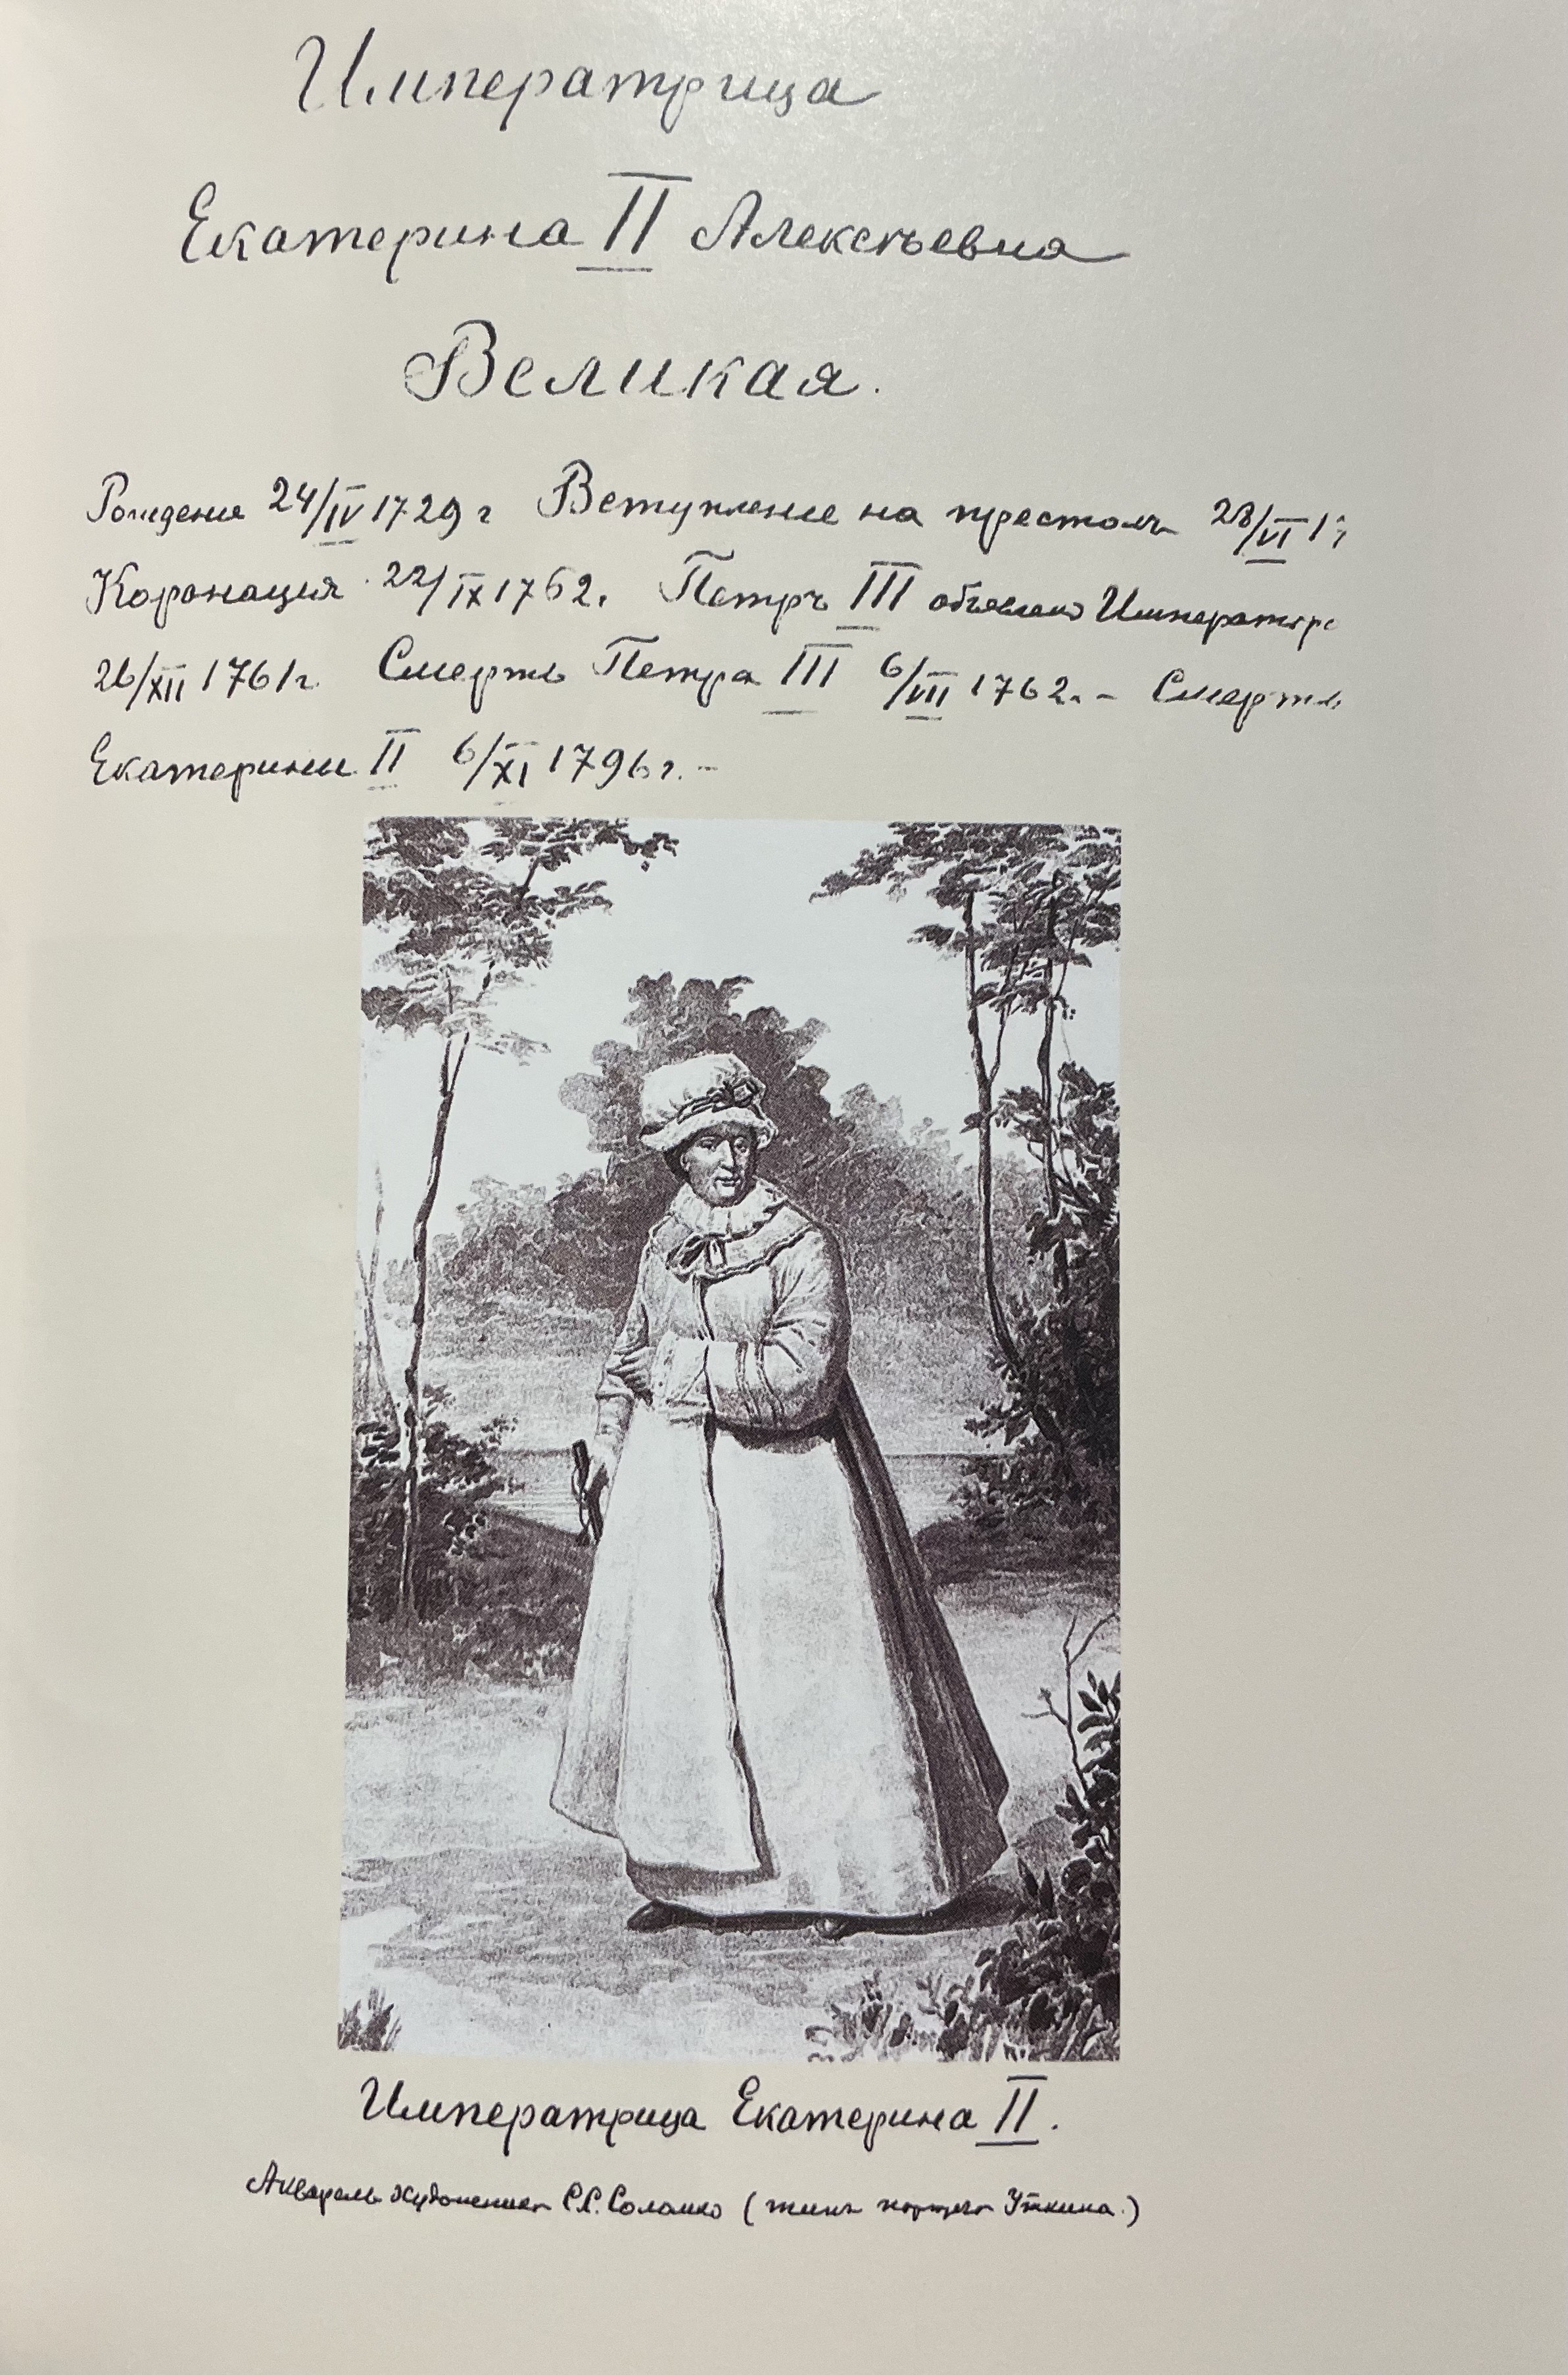 Императрица
Екатерина II Алексѣевна
Великая.
Рождение 24/IV 1729 г Вступление на престолъ 28/VI 17
Коронация 22/IX 1762. Петръ III объявленъ Императоро
26/XII 1761 г. Смерть Петра III 6/VII 1762. - Смерть
Екатерины II 6/XI 1796 г. -
Императрица Екатерина II.
Акварель художника С.С. Соломко ( типъ портрета Уткина. )